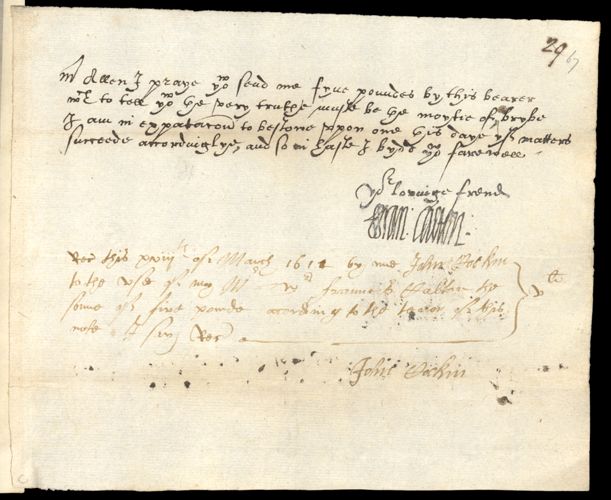 29 67
Mr Allen I praye yow send me fyve poundes by this bearer
wch to tell yow the very truthe muste be the moytie of a brybe
I am in expectacon to bestowe vppon one this daye yf matters
succeede accordinglye, and so in haste I byde yow farewell
yor lovinge frend
Received this xxiiith of March 1612 by me John
to the vse of my Mr Sr Frauncis the
some of five pounds according to the tenor of this
note I say Recd
v li
John